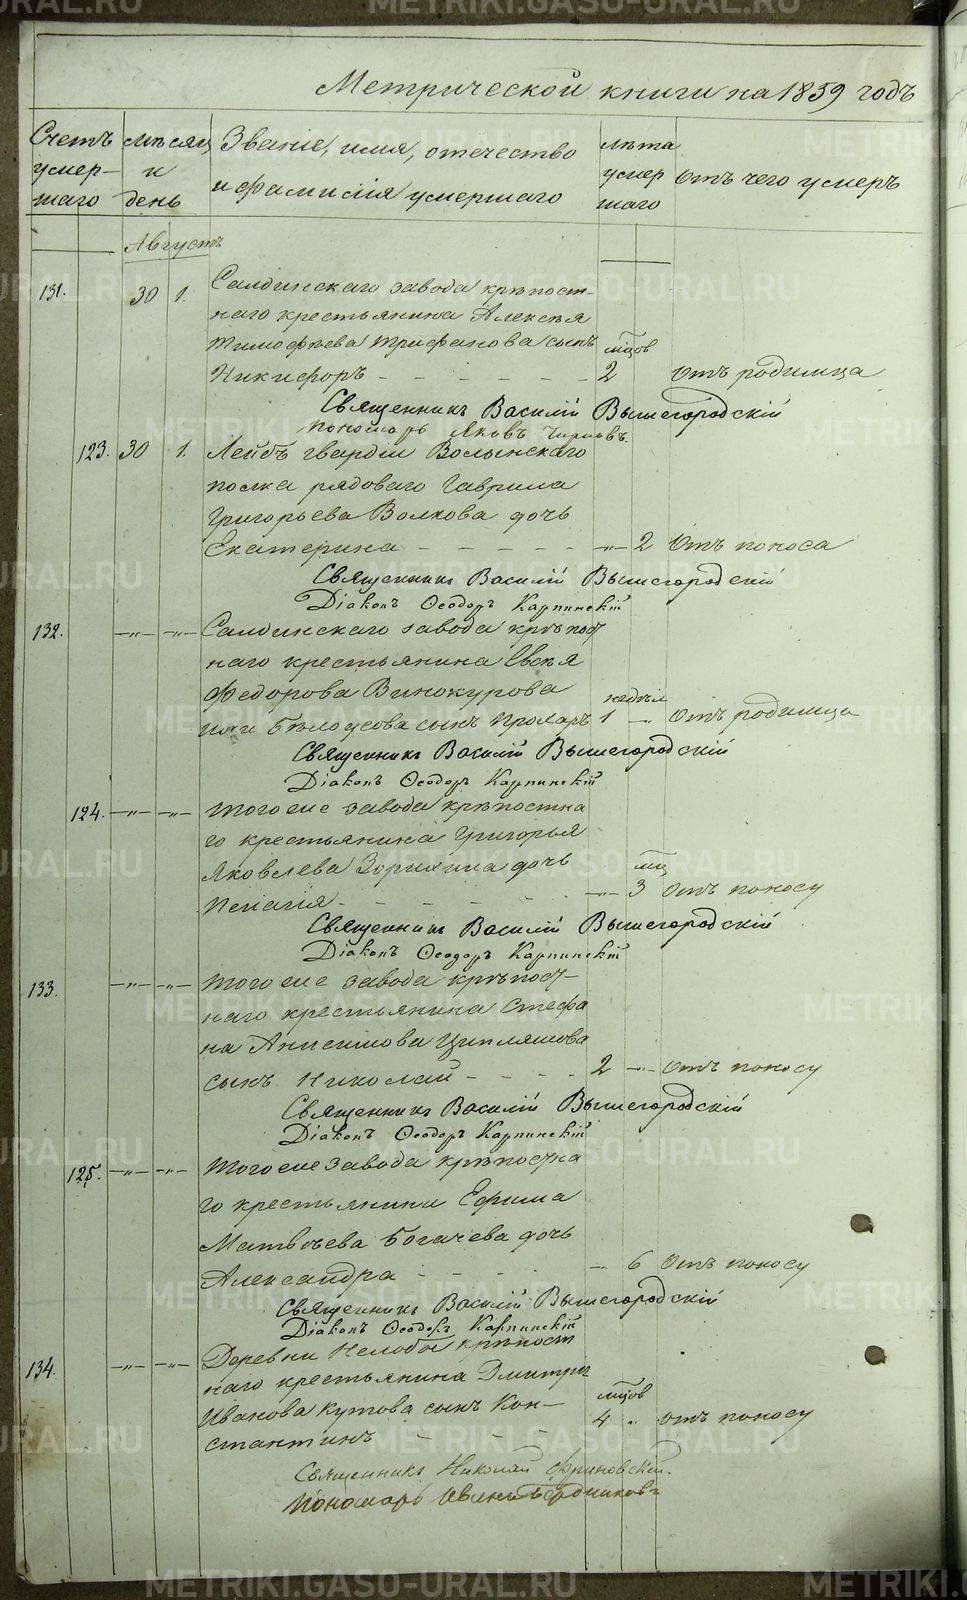 METRIKI.GASO-URAL.RU
Метрической книги на 1859 годъ
Счетъ умер-шаго
мѣсяц и день
Званіе, имя, отечество и фамилія умершаго
лѣта умер шаго
отъ чего умеръ
Августъ
131. 30 1. Салдинскаго завода крѣпост-
наго крестьянина Алексѣя
Тимофѣева Трифанова сынъ мцов
Никифоръ - - - - - - 2 отъ родимца
Священникъ Василій Вышегородскій
пономарь Яковъ
123. 30 1. Лейбъ гвардіи Волынскаго
полка рядоваго Гаврила
Григорьева Волкова дочь
Екатерина - - - - - -"- 2 Отъ поноса
Священникъ Василій Вышегородскій
Діаконъ Ѳеодоръ Карпинскій
132. -"- -"- Салдинскаго завода крѣпост
наго крестьянина Евсѣя
Федорова Винокурова недѣл
или Бѣлоусова сынъ Прохаръ 1 -"- отъ родимца
Священникъ Василій Вышегородскій
Діаконъ Ѳеодоръ Карпинскій
124. -"- -"- Того же завода крѣпостна
го крестьянина Григорья
Яковлева Зорихина дочь мц
Пелагія - - - - - - -"- 3 отъ поносу
Священникъ Василій Вышегородскій
Діаконъ Ѳеодоръ Карпинскій
133. -"- -"- Того же завода крѣпост-
наго крестьянина Стефа
на Анисимова Ципляшова
сынъ Николай - - - - 2 -"- отъ поносу
Священникъ Василій Вышегородскій
Діаконъ Ѳеодоръ Карпинскій
125. -"- -"- Того же завода крѣпостна
го крестьянина Ефима
Матвѣева Богачева дочь
Александра - - - - -"- 6 отъ поносу
Священникъ Василій Вышегородскій
Діаконъ Ѳеодоръ Карпинскій
134. -"- -"- Деревни Нелобы крѣпост
наго крестьянина Дмитрія
Иванова Кутова сынъ Кон- мцов
стантинъ - - - 4 " отъ поносу
Священникъ Николай Флоровскій.
Пономарь